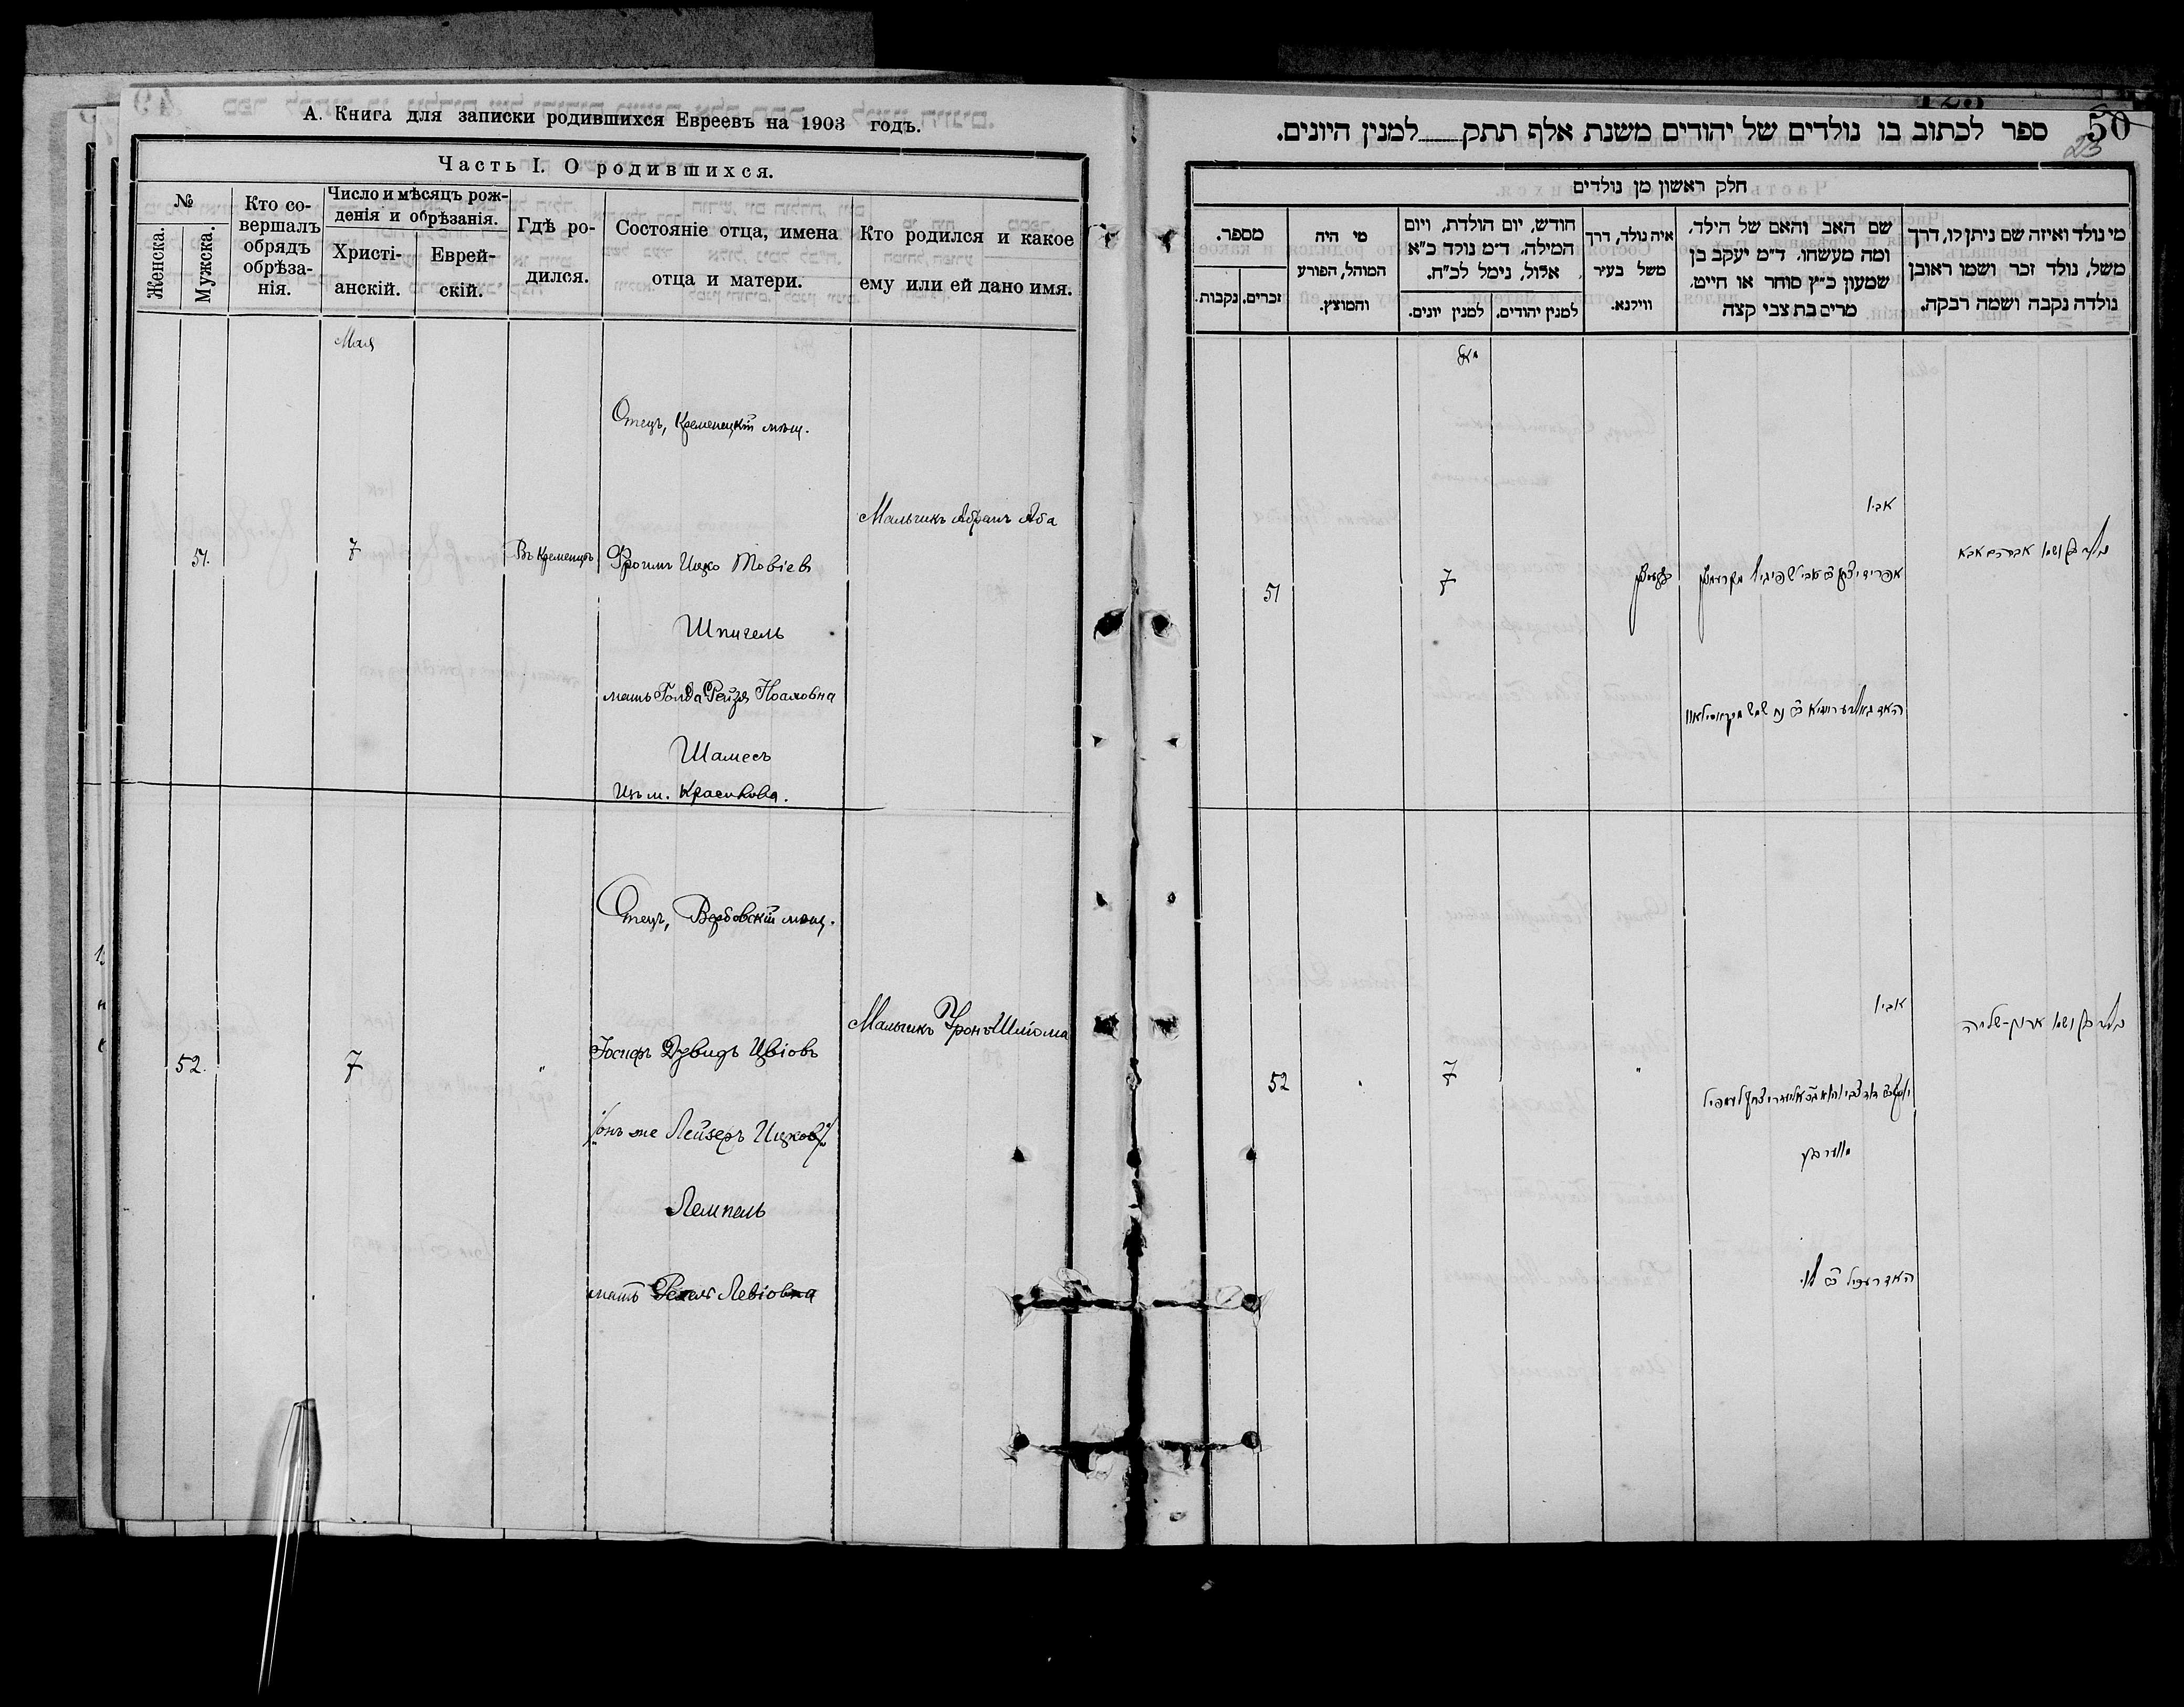 А. Книга для записки родившихся Евреевъ на 1903 годъ.
Часть I. О родившихся.
№
Женска.
Мужска.
Кто со-
вершалъ
обрядъ
обрѣза-
нія.
Число и мѣсяцъ рож-
денія и обрѣзанія.
Христі-
анскій.
Еврей-
скій.
Гдѣ ро-
дился.
Состояніе отца, имена
отца и матери.
Кто родился и какое
ему или ей дано имя.
Мая
Отецъ, Кременецкій мѣщ.
Мальчикъ Абрамъ Аба
51.
7
Въ Кременцѣ
Фроимъ Ицко Товіев
Шпигель
мать Голда Рейзя Ноаховна
Шамесъ
Изъ м. Красилова.
Отецъ, Вербовскій мѣщ.
Мальчикъ Аронъ Шлома
52.
7
"
Іосифъ Дувидъ Цвіовъ
/онъ же Лейзеръ Ицковъ/
Лемпель
мать Рехля Левіовна
50
23
ספר לכתוב בו נולדים של יהודים משנת אלף תתק למנין היונים.
חלק ראשון מן נולדים
מספר.
זכרים.
נקבות.
מי היה
המוהל, הפורע
והמוצץ.
חודש, יום הולדת, ויום
המילה. ד״מ נולד כ״א
אלול, נימל לכ״ח.
למנין יהודים.
למנין יונים.
איה נולד, דרך
משל בעיר
ווילנא.
שם האב והאם של הילד,
ומה מעשהו. ד״מ יעקב בן
שמעון כ״ץ סוחר או חייט.
מרים בת צבי קצה
מי נולד ואיזה שם ניתן לו, דרך
משל, נולד זכר ושמו ראובן
נולדה נקבה ושמה רבקה.
מאי
אביו
51
7
נולד בן ושמו אברהם אבא
אביו
52
7
"
נולד בן ושמו אהרן-שלמה